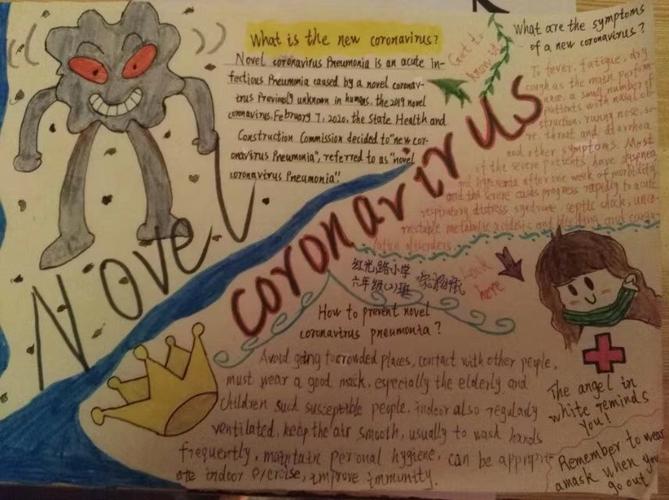 What is the new coronavirus?
Novel coronavirus Pneumonia is an acute in-
fectious Pneumonia caused by a novel corona-
virus Previously unknown in humans. the 2019 novel
coronavirus. February 7, 2020. the State Health and
Construction Commission decided to "new cor-
onavirus Pneumonia", referred to as "novel
coronavirus Pneumonia".
Get to
What are the symptoms
of a new coronavirus?
To fever, fatigue, dry
cough as the main
a small number of
patients with nasal
runny nose,
throat and diarrhea
and other symptoms. Most
of the severe patients have dyspnea
after one week of
and the severe cases progress rapidly to acute
respiratory distress syndrome, septic shock,
metabolic acidosis and bleeding and
disorders.
Novel
coronavirus
红光路小学
六年级(2)班
Look
here
How to prevent novel
coronavirus pneumonia?
Avoid going to crowded places, contact with other people,
must wear a good mask, especially the elderly and
children such susceptible people. indoor also regularly
ventilated, keep the air smooth, usually to wash hands
frequently, maintain personal hygiene, can be
indoor improve immunity.
The angel in
white reminds
you!
Remember to wear
a mask when you
go out